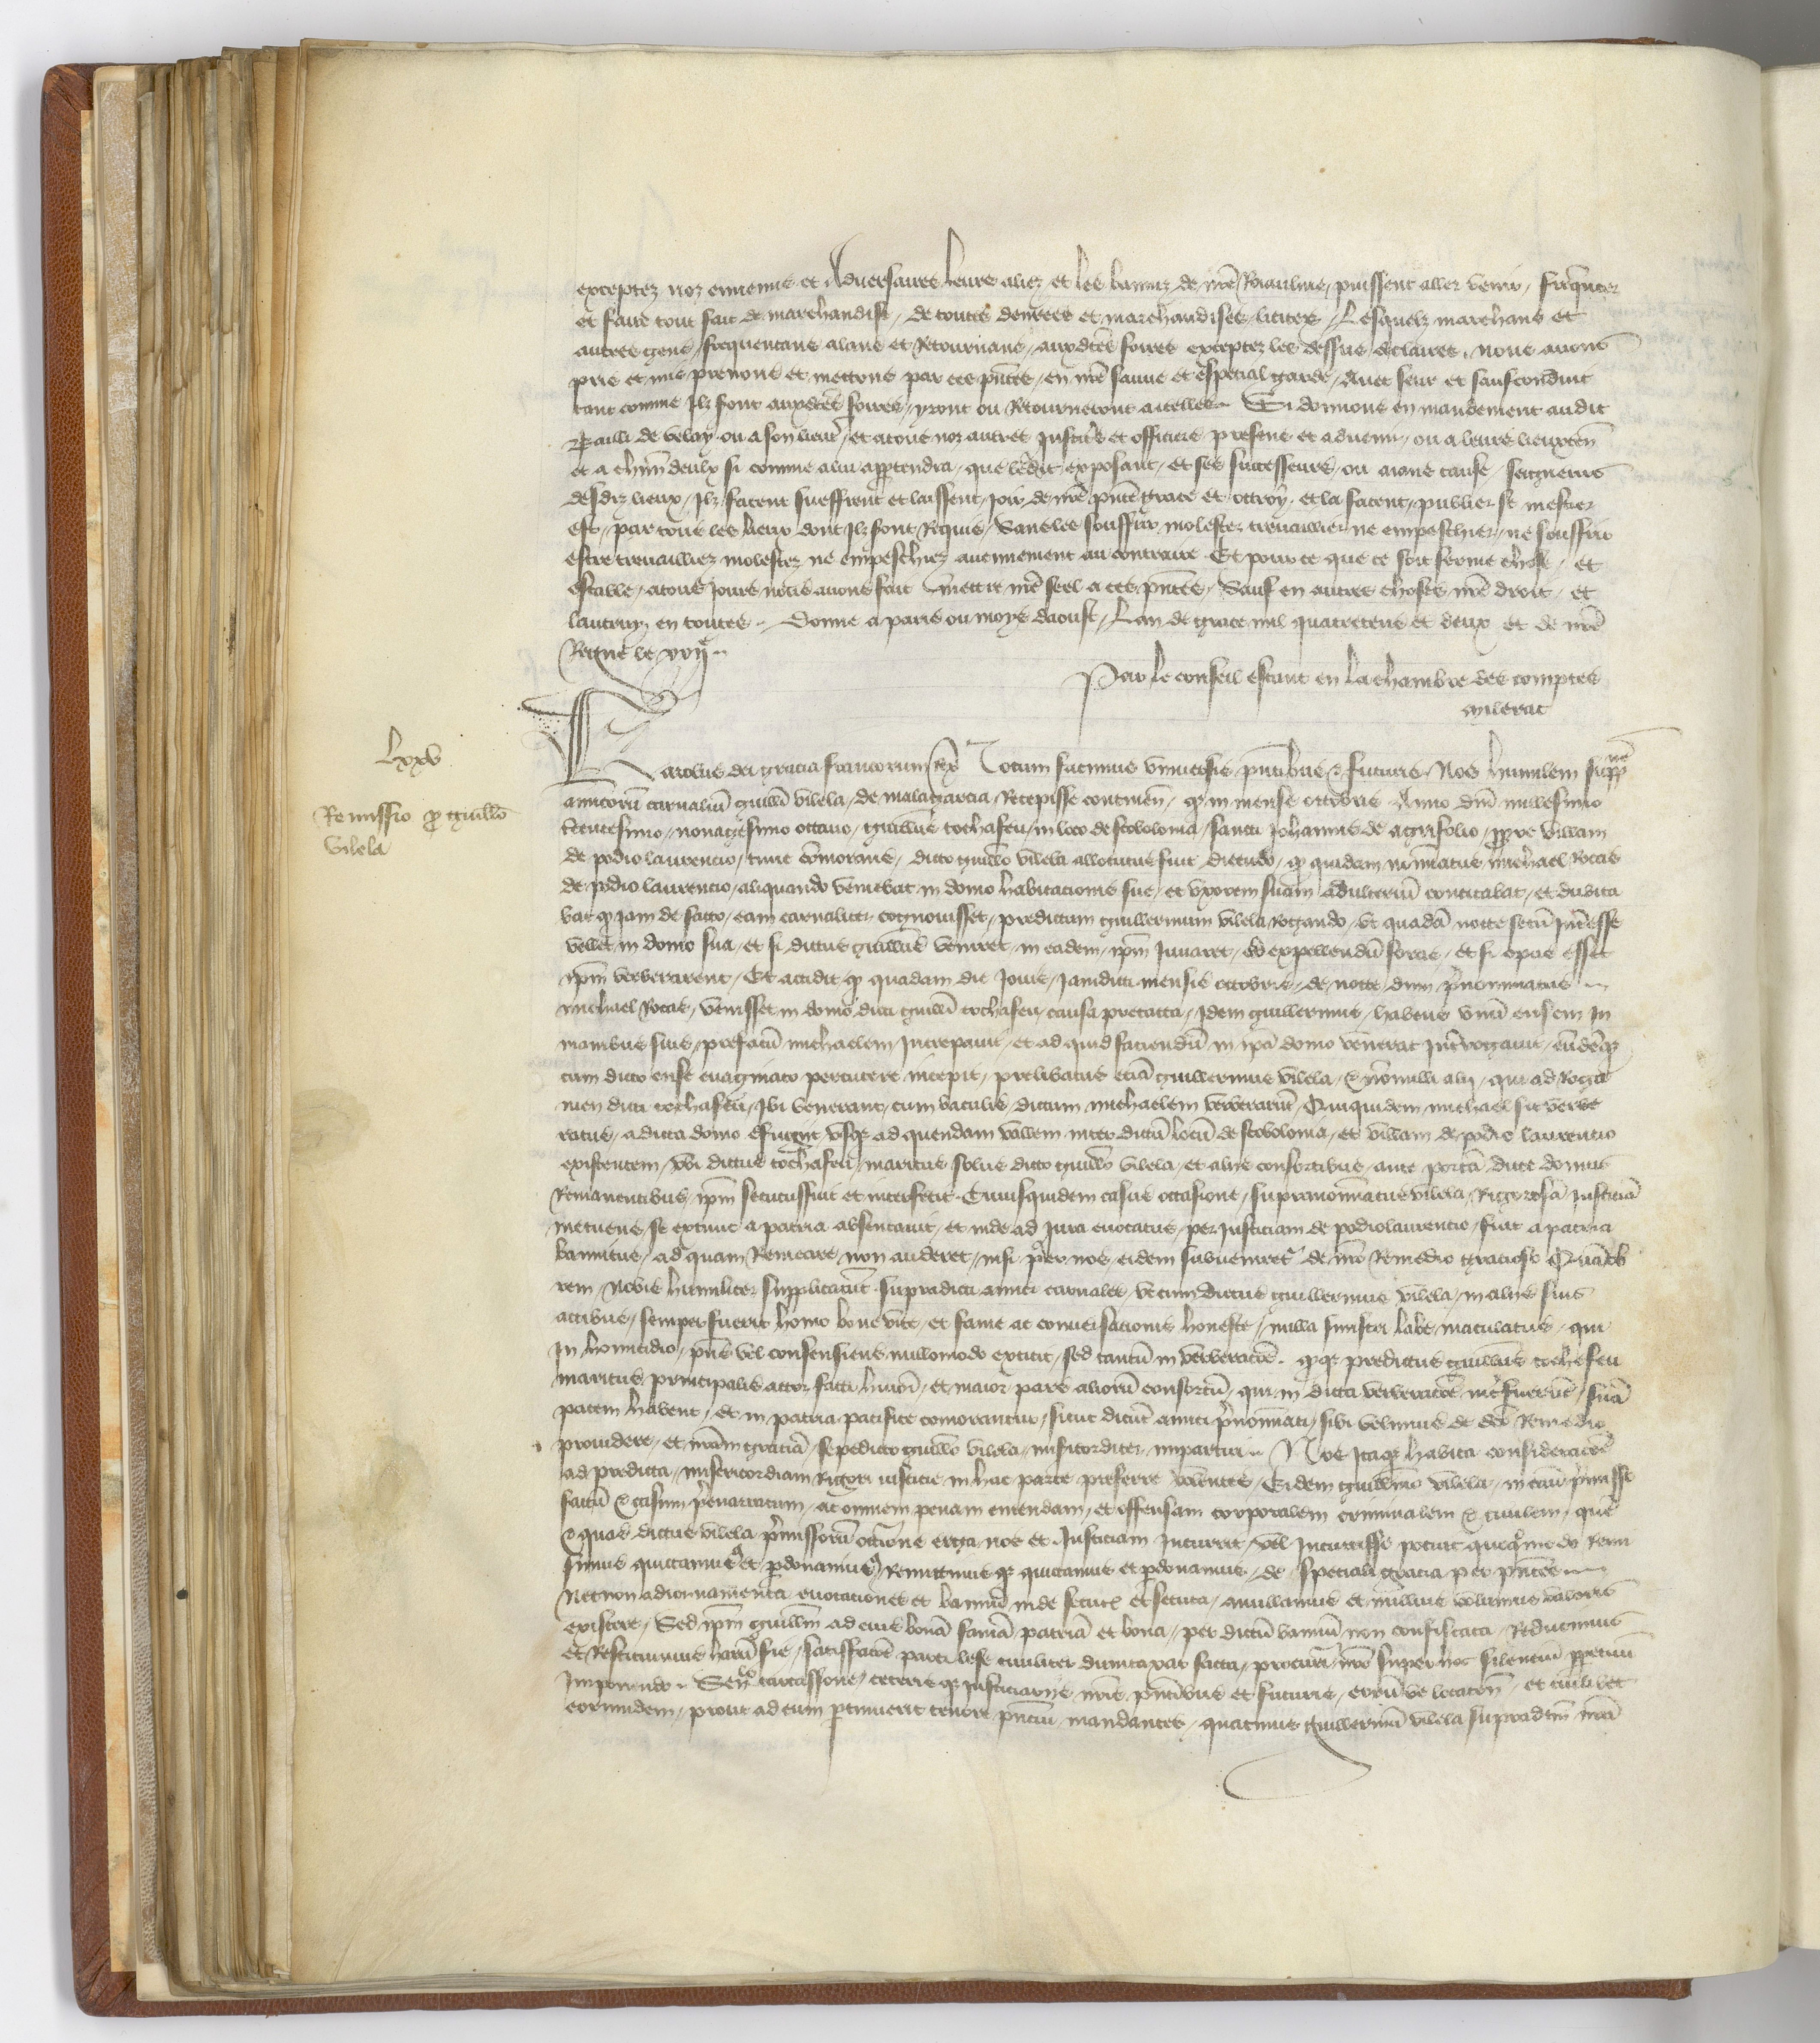 exceptez noz ennemis et Adversaires leurs aliez et les banniz de nrē Royaulme, puissent aller venir, frequenter
et faire tout fait de marchandise, de toutes denrees et marchandises licites, Lesquelz marchans et
autres gens frequentans alans et Retournans auxdctēs foires exceptez les dessus declairez, nous avons
pris et mis prenons et mettons par ces pñtes, en nrē sauve et especial garde, Avec seur et saufconduit
tant comme Ilz sont auxdctēs foires, yront ou Retourneront dicelles. Si donnons en mandement au dit
Bailli de velay ou a son lieutēn, et a tous noz autres Justicīers et officiers presens et advenir, ou a leurs lieuxtēn
et a chūn deulx si comme a lui appartendra, que ledit exposant, et ses successeurs, ou aians cause seigneurs
desdiz lieux, Ilz facent sueffrent et laissent, Joir de nrē pñte grace et octroy, et la facent publier se mestier
est, par tous les lieux dont Ilz sont Requis, Sans les souffrir molester travaillier ne empeschier, ne souffrir
estre travailliez molestez ne empeschiez aucunement au contraire Et pour ce que ce soit ferme chose, et
estable, a tous Jours nous avons fait mettre nrē seel a ces pñtes, Sauf en autres choses nrē droit, et
lautruy en toutes. Donne a paris ou moys daoust, Lan de grace mil quatrecens et deux et de nrē
Regne le xxije
Par le conseil estant en la chambre des comptes
Milerat
Lxxv
Remissio p guillō
vilela
Karolus dei gracia francorum Rex Notum facimus universis, pñtibus & futuris, Nos humilem suppne
amicorū carnaliū guillī vilela, de malagarcia, Recepisse continēn, q in mense octobris Anno dnī millesimo
trecentesimo, nonagesimo octavo, guillūs tochafeu, in loco de scobolonia, sancti Johannis de agrifolio, prope villam
de podio laurencio, tunc cōmorans, dicto guillō vilela allocutus fuit dicendo, q quidam nōiatus michael Rocas
de podio laurencio, aliquando veniebat in domo habitacionis sue, et uxorem suam adulteriū concitabat, et dubita
bat q Jam de facto, eam carnaliter cognovisset, predictum guillermum vilela Rogando, ut quadā nocte secū Intēsse
vellet in domo sua, et si dictus guillūs veniret, in eadem, ipm Juvaret, ad expellendū foras, et si opus esset
ipm verberarent, Et accidit q quadam die Jovis, Jamdicti mensis octobris, de nocte dum p̄nominatus
michael Rocas, venisset in domo dicti guillī tochafeu, causa pretacta, Idem guillermus, habens unū ensem In
manibus suis, prefatū michaelem Increpavit, et ad quid faciendū in ipā domo venerat Int̄rogavit, eūdēq
cum dicto ense evaginato percutere incepit, prelibatus etiā guillermus vilela, & nōnulli alij, qui ad Roga
men dicti tochafeu, Ibi venerant, cum baculis, dictum michaelem verberarūt, Quiquidem michael sic verbe
ratus, a dicta domo effugiit, usq ad quendam vallem inter dictū locū de scobolonia, et villam de podio laurencio
existentem, ubi dictus tochafeu, maritus solus dicto guillō vilela, et aliis consortibus, ante portā dicte domus
Remanentibus, ipm secutus fuit et interfecit. Cuiusquidem casus occasione, supranominatus vilela, Rigorosā Justiciā
metuens, se extunc a patria absentavit, et inde ad Jura evocatus, per Justiciam de podiolaurencio, fuit a patria
bannitus, ad quam Remeare non auderet, nisi per nos eidem subvenirēt de nrō Remedio gracioso Quāob
rem Nobis humiliter supplicarūt supradicti amici carnales, ut cum dictus guillermus vilela, in aliis suis
actibus, semper fuerit homo bone vite, et fame ac conversacionis honeste, nulla sinistri labe maculatus, qui
In homicidio, pñs vel consensiens nullomodo extitit, sed tantū in verberacōe. q predictus guillūs tochefeu
maritus principalis actor facti hui, et maior pars aliorū consortū, qui in dicta verberacōe int̄fuerūt, suā
pacem habent, et in patria pacifice comorantur, sicut dicūt amici p̄nominati, sibi velimus de dcō Remedio
providere, et nrām graciā, sepedicto guillō vilela, misericorditer impartiri. Nos Itaq habita consideracōe
ad predicta, misericordiam Rigori iusticie in hac parte preferre volentes, Eidem guillmō vilela, in casu p̄misso
factū & casum p̄narratum, ac omnem penam emendam, et offensam corporalem criminalem & civilem, quē
& quas dictus vilela p̄missorū occōne erga nos et Justiciam Incurrit, vel Incurrisse potuit quoquomodo Remi
simus quictamus et pdonamus, Remittimusq quictamus et pdonamus, de speciali gracia per pñtes
Necnon adiornamenta evocaciones et bannū, inde secut et secuta, annullamus et nullius volumus valoris
existere, Sed ipm guillm ad eius bonā famā patriā et bona, per dictū bannū non confiscata, Reducimus
et Restituimus harū sie, satisfacōe parti lese civiliter dumtaxat facta, procurī nrō super hoc silenciū ppetuū
Imponendo. Senlo carcassone, ceterisq Justiciariis nrīs, pñtibus et futuris, eorūve locatēn, et cuilibet
eorumdem, prout ad eum ptinuerit tenore pñciū mandantes, quatinus guillermū vilela supradcm nrā